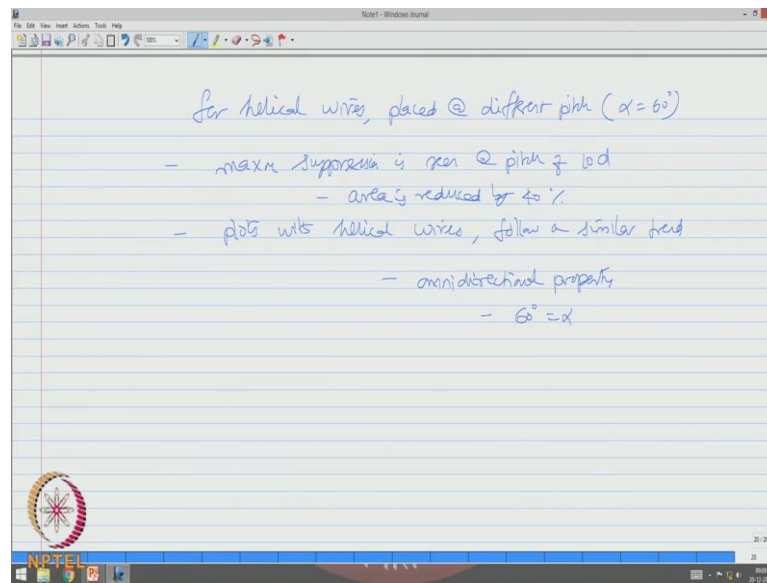 Note1 - Windows Journal
File Edit View Insert Actions Tools Help
for helical wires, placed @ different pitch (α = 60°)
- maxm suppression is seen @ pitch of 10d
- area is reduced by 40 %
- plots with helical wires, follow a similar trend
- omnidirectional property
- 60° = α
NPTEL